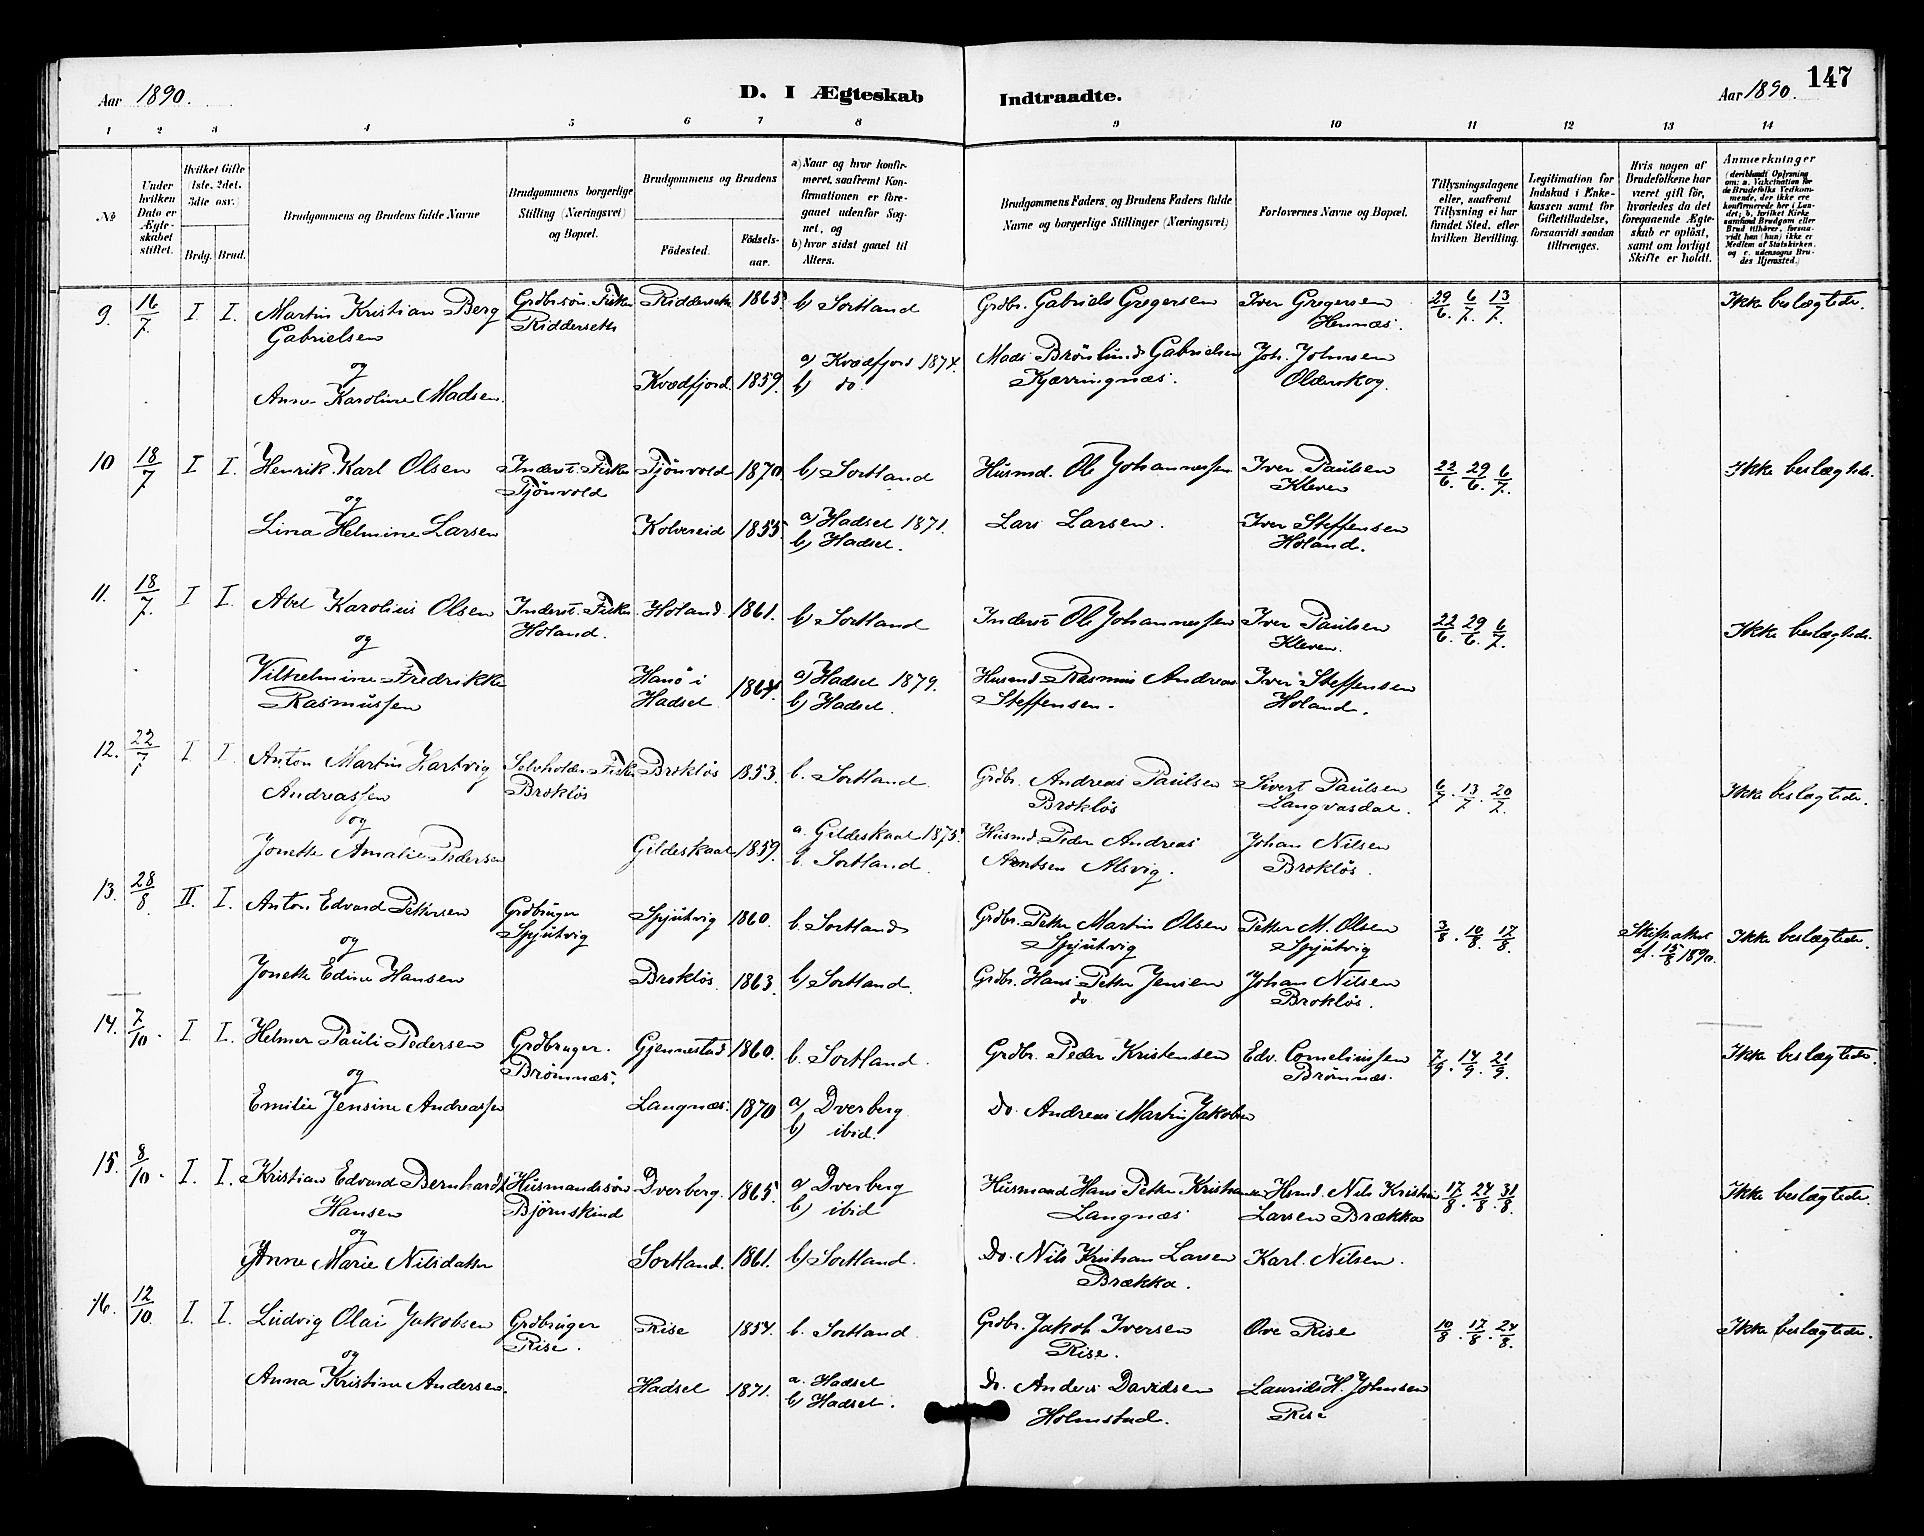 147
Aar 1890.
D. I Ægteskab Indtraadte.
Aar 1890.
1 2 3 4 5 6 7 8 9 10 11 12 13 14
№
Under hvilken Dato er Ægteskabet stiftet.
Hvilket Gifte 1ste, 2det, 3die osv.)
Brdg. Brud.
Brudgommens og Brudens fulde Navne
Brudgommens borgerlige Stilling (Næringsvei) og Bopæl.
Brudgommens og Brudens
Födested.
Födsels-aar.
a) Naar og hvor konfirmeret, saafremt Konfirmationen er foregaaet udenfor Sognet, og
b) hvor sidst gaaet til Alters.
Brudgommens Faders, og Brudens Faders fulde Navne og borgerlige Stillinger (Næringsvei)
Forlovernes Navne og Bopæl.
Tillysningsdagene eller, saafremt Tillysning ei har fundet Sted, efter hvilken Bevilling.
Legitimation for Indskud i Enkekassen samt for Giftetilladelse, forsaavidt saadan tiltrænges.
Hvis nogen af Brudefolkene har været gift för, hvorledes da det foregaaende Ægteskab er oplöst, samt om lovligt Skifte er holdt.
Anmærkninger
(deriblandt Oplysning om: a. Vakcination for de Brudefolks Vedkommende, der ikke ere konfirmerede her i Landet; b. hvilket Kirkesamfund Brudgom eller Brud tilhörer, forsaavidt han (hun) ikke er Medlem af Statskirken, og c. udensogns Brudes Hjemsted.)
9. 16/7 I I. Martin Kristian Berg Grdbrsön. Fisker Ridderseth 1865 b) Sortland Grdbr. Gabriels Gregersen Iver Gregersen 29/6. 6/7. 13/7. Ikke beslægtede.
Gabrielsen Ridderseth Hennæs.
og
Anne Karoline Madsen. Kvædfjord 1859. a) Kvædfjord 1874. Mads Brönlund Gabrielsen Joh. Johnsen
b) do. Kjærringnæs. Olderskog.
10 18/7 I I. Henrik Karl Olsen Inderst. Fisker Tjönvold 1870 b) Sortland Husmd. Ol Johannessen Iver Paulsen 22/6. 29/6. 6/7. Ikke beslægtede.
og Tjönvold Kleven
Lina Helmine Larsen Kolvereid 1855. a) Hadsel 1871. Lars Larsen. Iver Steffensen
b) Hadsel. Holand.
11. 18/7. I I. Abel Karolius Olsen Inderst. Fisker Holand 1861. b) Sortland Inderst Ol Johannessen Iver Paulsen 22/6. 29/6. 6/7. Ikke beslægtede.
og Holand. Kleven.
Vilhelmine Fredrikke Hanö i Hadsel 1864. a) Hadsel 1879. Husmd. Rasmus Andreas Iver Steffensen
Rasmussen b) Hadsel. Steffensen. Holand.
12. 22/7 I I. Anton Martin Hartvig Selvholder Fisker Brokløs 1853. b. Sortland Grdbr. Andreas Paulsen Sivert Paulsen 6/7. 13/7. 20/7. Ikke beslægtede.
Andreassen Brokløs Brokløs Langvasdal.
og
Jonette Amalie Pedersen Gildeskaal 1859. a. Gildeskaal 1875. Husmd. Peder Andreas Johan Nilsen
b. Sortland. Arntsen Alsvig. Brokløs.
13. 28/8. II. I. Anton Edvard Pettersen Grdbruger Spjutvig 1860. b. Sortland Grdbr. Petter Martin Olsen Petter M. Olsen 3/8. 10/8. 17/8. Skifteattest Ikke beslægtede.
og Spjutvig Spjutvig Spjutvig af 15/8 1890.
Jonette Edine Hansen Brokløs. 1863. b) Sortland. Grdbr. Hans Petter Jensen Johan Nilsen
do Brokløs.
14. 7/10. I I. Helmer Pauli Pedersen Grdbruger. Gjennestad 1860. b. Sortland. Grdbr. Peder Kristensen Edv. Corneliussen 7/9. 14/9. 21/9. Ikke beslægtede.
og Brömnæs. Brömnæs.
Emilie Jensine Andreassen Langnæs. 1870 a) Dverberg Do. Andreas Martin Jakobsen
b) ibid.
15. 8/10. I. I. Kristian Edvard Bernhardt Husmandssön Dverberg. 1865. a) Dverberg Husmand Hans Petter Kristiansen Hsmd. Nils Kristian 17/8. 24/8. 31/8. Ikke beslægtede.
Hansen Bjørnskind b) ibid Langnæs Larsen Brækka
og
Anne Marie Nilsdatter Sortland. 1861. b) Sortland. Do. Nils Kristian Larsen Karl Nilsen.
Brækka.
16. 12/10. I. I. Ludvig Olai Jakobsen Grdbruger Rise 1854. b. Sortland Grdbr. Jakob Iversen Ove Rise 10/8. 17/8. 24/8. Ikke beslægtede.
og Rise. Rise.
Anna Kristine Andersen. Hadsel 1871. a. Hadsel Do. Anders Davidsen Laurids H. Johnsen
b) Hadsel. Holmstad. Rise